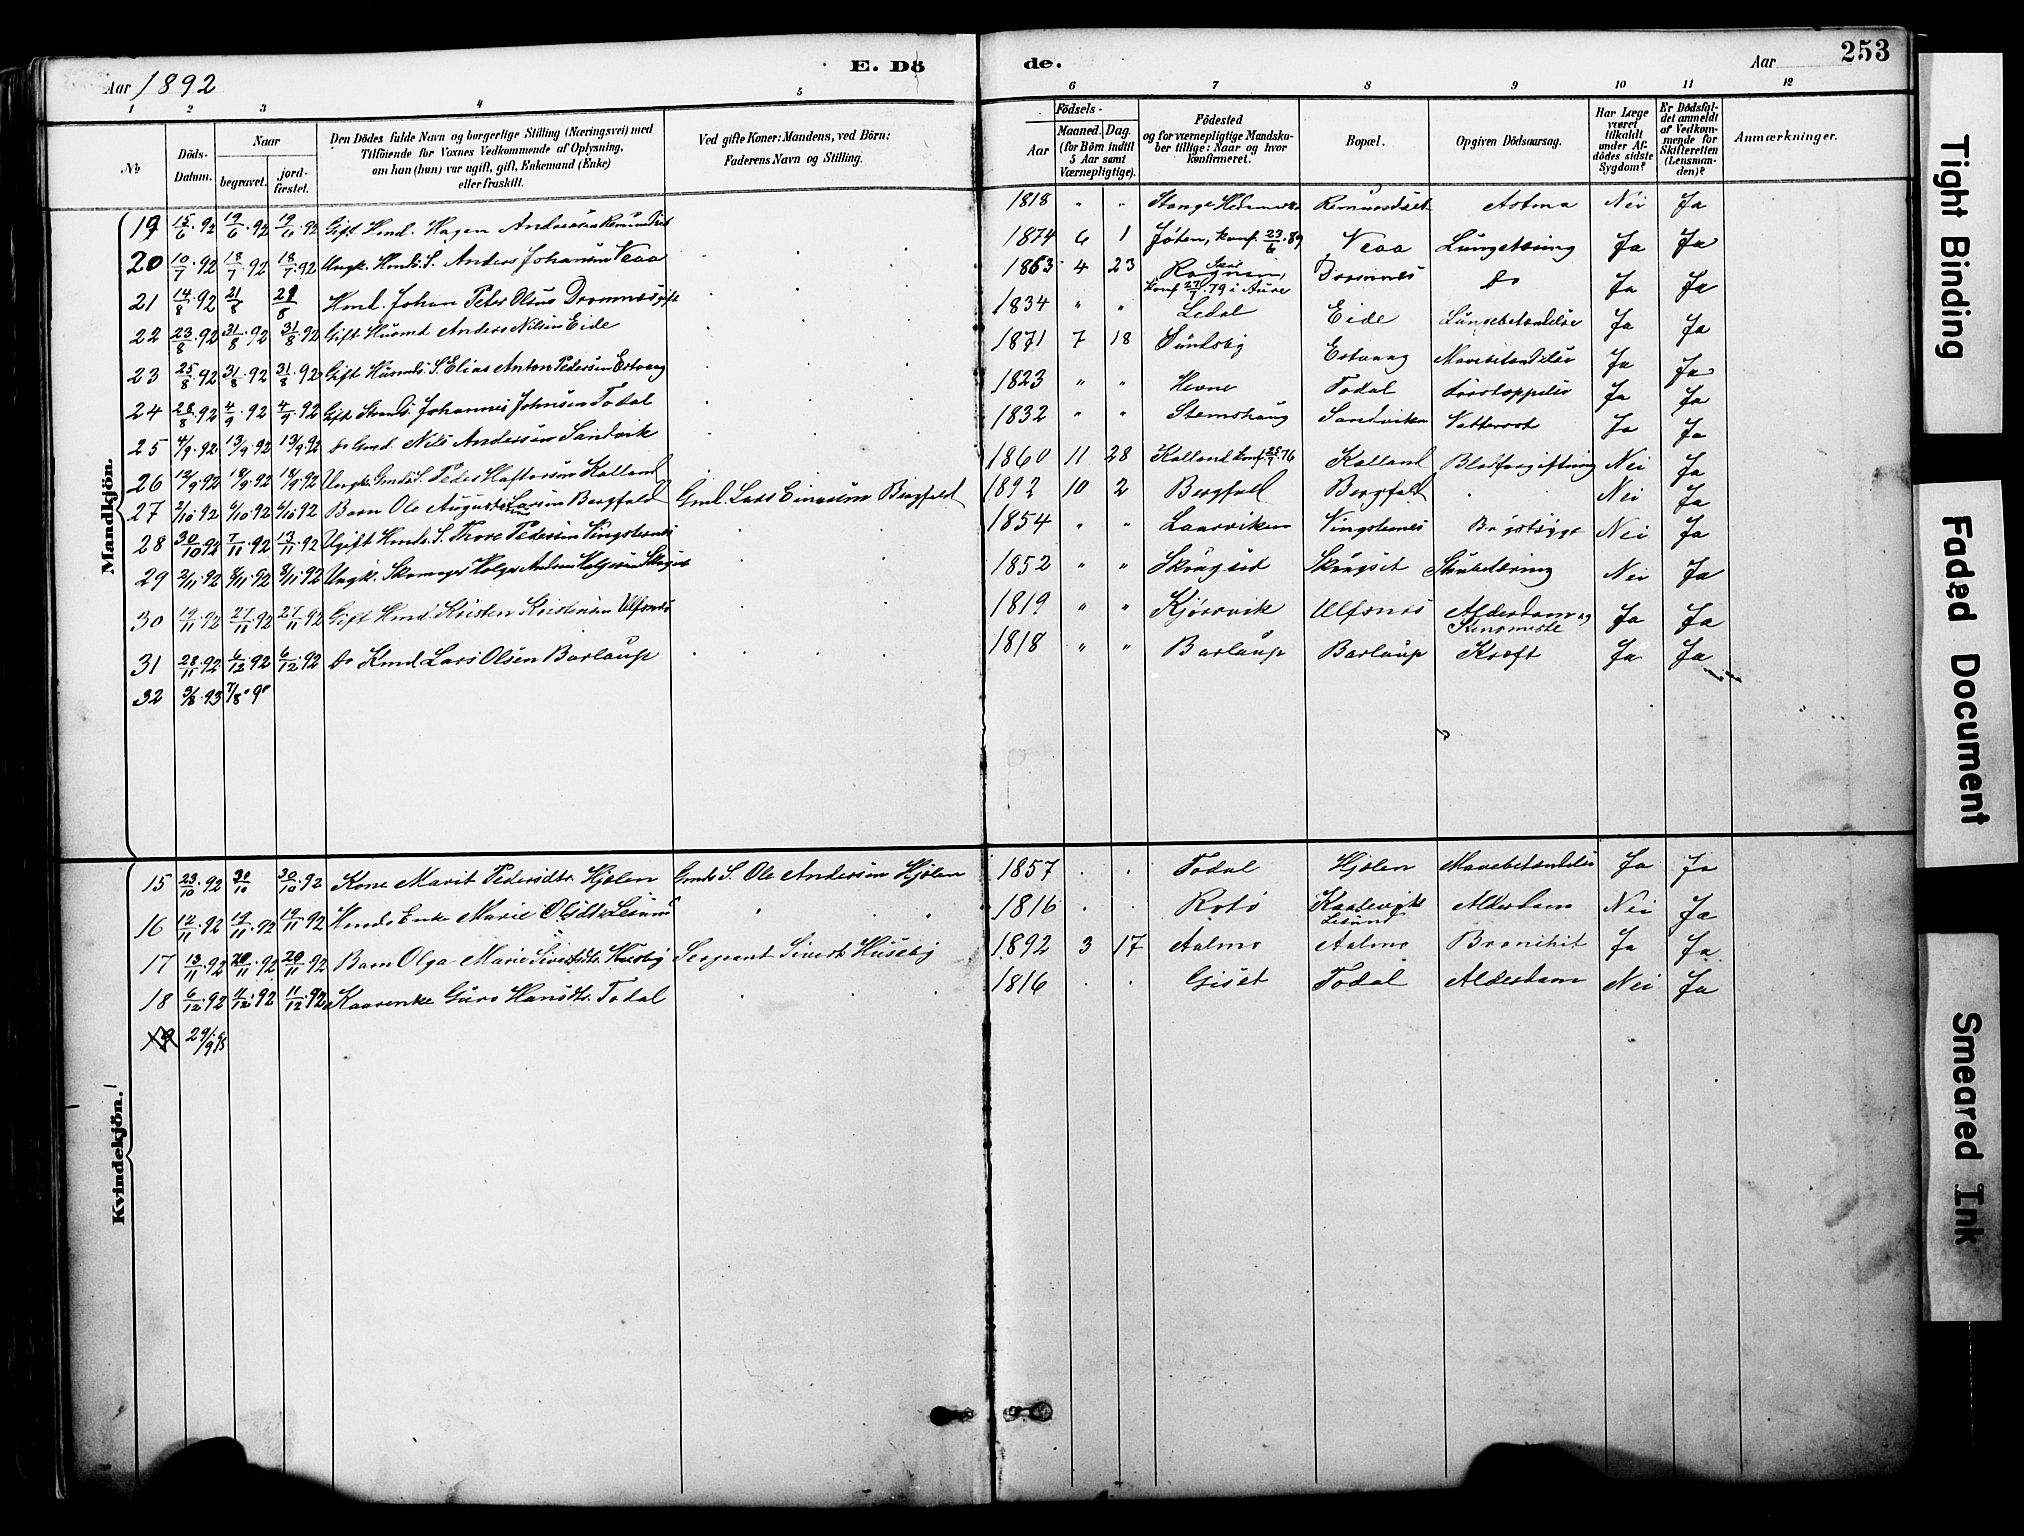 Aar 1892
E. Dö de.
Aar
253
1 2 3 4 5 6 7 8 9 10 11 12
No
Döds-Datum.
Naar
begravet. jord-fæstet.
Den Dödes fulde Navn og borgerlige Stilling (Næringsvei) med
Tilföiende for Voxnes Vedkommende af Oplysning,
om han (hun) var ugift, gift, Enkemand (Enke)
eller fraskilt.
Ved gifte Koner: Mandens, ved Börn:
Faderens Navn og Stilling.
Födsels-
Aar
Maaned. Dag.
(for Börn indtil
5 Aar samt
Værnepligtige).
Födested
og for værnepligtige Mandska-
ber tillige: Naar og hvor
konfirmeret.
Bopæl.
Opgiven Dödsaarsag.
Har Læge
været
tilkaldt
under Af-
dödes sidste
Sygdom?
Er Dödsfal-
det anmeldt
af Vedkom-
mende for
Skifteretten
(Lensman-
den)?
Anmærkninger.
Mandkjön.
19 15/6.92 19/6.92 19/6.92 Gift Hmd. Hagen Andreasen Remundset 1818 " " Stange Hedemarke Remundset Astma Nei Ja
20 10/7.92 18/7.92 18/7.92 Ungk. Hmds. S. Anders Johansen Veaa 1874 6 1 konf. 23/6.89 Veaa Lungetæring Ja Ja
21 14/8.92 21/8 21/8 Hmd. Johan Peter Olsen Dromnes gift 1863 4 23 konf. 27/7.79 i Aure Dromnes Do Ja Ja
22 23/8.92 31/8.92 31/8.92 Gift Husmd Anders Nilsen Eide 1834 " " Ledal Eide Lungebetændelse Ja Ja
23 25/8.92 31/8.92 31/8.92 Gift Husmds. S. Elias Anton Pedersen Estvaag 1871 7 18 Sundsby Estvaag Mavebetændelse Ja Ja
24 28/8.92 4/9.92 4/9.92 Gift Johannes Johnsen Todal 1823 " " Hevne Todal Ja Ja
25 4/9.92 13/9.92 13/9.92 Do Gmd. Nils Andersen Sandvik 1832 " " Stemshaug Sandviken Vattersot Ja Ja
26 12/9.92 18/9.92 18/9.92 Ungk. Gmds. S. Peder Haftorsen Kalland 1860 11 28 Kalland konf. 76 Kalland Blodforgiftning Nei Ja
27 2/10.92 6/10.92 6/10.92 Barn Ole August Larsen Bergfald Gmd. Lars Einersen Bergfald 1892 10 2 Bergfald Bergfald Nei Ja
28 30/10.92 7/11.92 13/11.92 Ugift Hmds. S. Thore Pedersen Vingsternes 1854 " " Laurviken Vingsternes Brystsyge Nei Ja
29 2/11.92 8/11.92 8/11.92 Ungk. Skomager Holger Andreas Holgersen Skogset 1852 " " Skougset Skougset Strubetæring Nei Ja
30 19/11.92 27/11.92 27/11.92 Gift Hmd. Kristen Kristensen Ulfsnes 1819 " " Kjørsvik Ulfsnes Alderdom og Ja Ja
31 28/11.92 6/12.92 6/12.92 Do Kmd Lars Olsen Barlaup 1818 " " Barlaup Barlaup Kræft Ja Ja
32 3/8.93 7/8.9
Kvindekjön.
15 23/10.92 30/10 30/10.92 Kone Marit Pedersdtr. Hjelen Gmds S. Ole Andersen Hjelen 1857 Todal Hjelen Mavebetændelse Ja Ja
16 12/11.92 19/11.92 19/11.92 Hmds Enke Marie Olsdtr Lesund 1816 Rotø Lesund Alderdom Nei Ja
17 13/11.92 20/11.92 20/11.92 Barn Olga Marie Sivertsdtr. Huseby Sergeant Sivert Huseby 1892 3 17 Aalmo Aalmo Bronchit Ja Ja
18 6/12.92 11/12.92 11/12.92 Kaarenke Guro Hansdtr. Todal 1816 Giset Todal Alderdom Nei Ja
19
Tight Binding
Faded Document
Smeared Ink